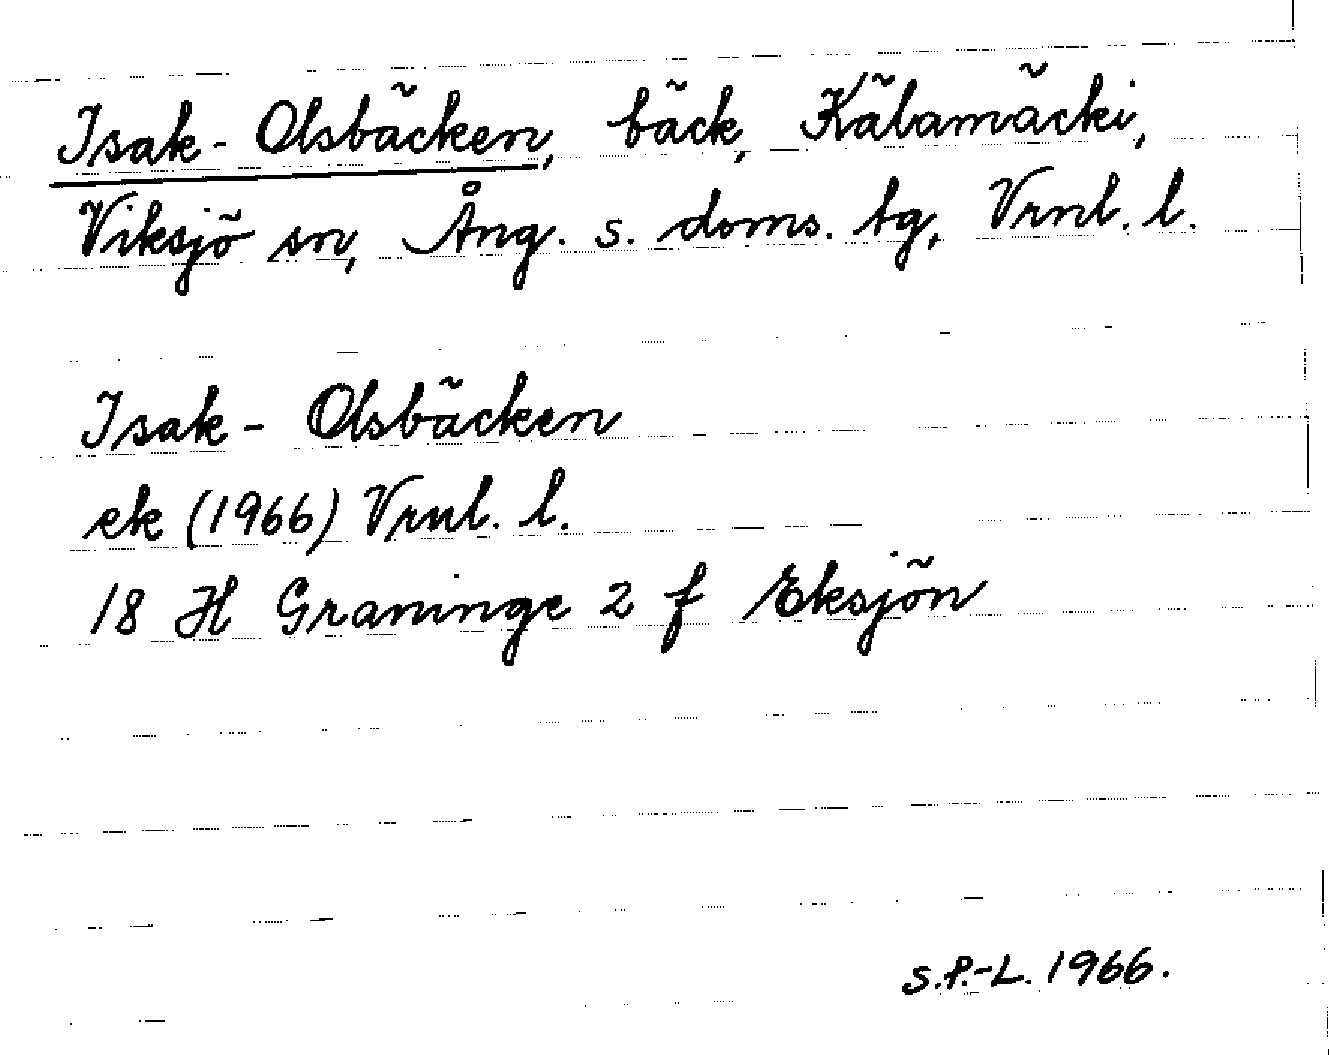 Isak-Olsbäcken, bäck, Källarnäcki,
Viksjö sn, Ång. s. doms. tg, Vrnl. l.
Isak-Olsbäcken
ek (1966) Vrnl. l.
18 H Graninge 2 f Eksjön
S.P.-L. 1966.